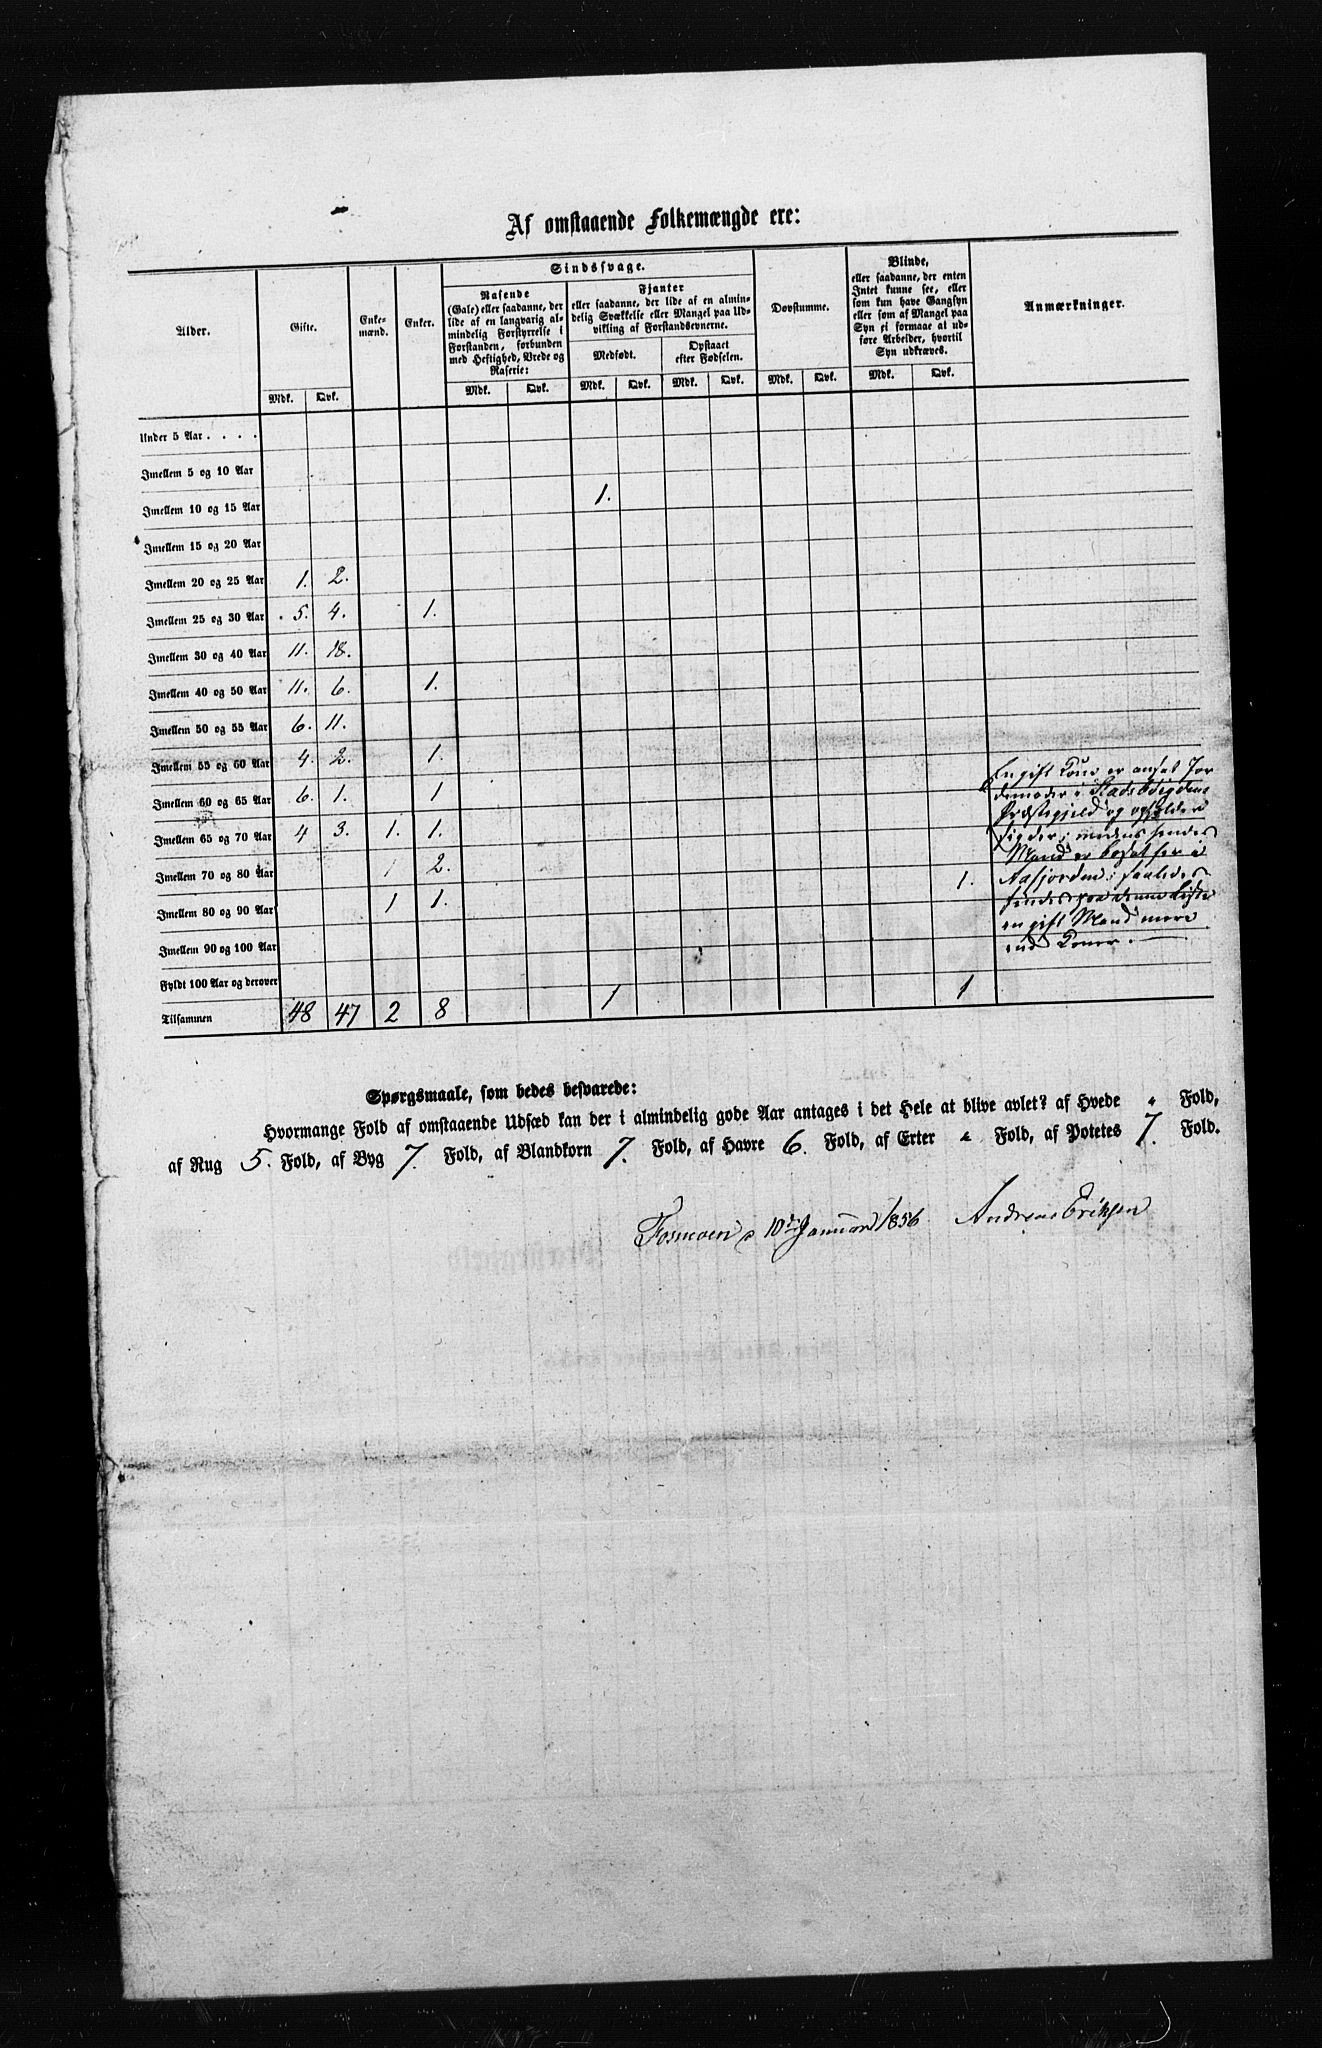 Af omstaaende Folkemængde ere:
Alder. Gifte. Enke-mænd. Enker. Sindssvage. Døvstumme. Blinde, Anmærkninger.
Rasende
(Gale) eller saadanne, der
lide af en langvarig al-
mindelig Forstyrrelse i
Forstanden, forbunden
med Heftighed, Vrede og
Raserie:
Fjanter
eller saadanne, der lide af en almin-
delig Svækkelse eller Mangel paa Ud-
vikling af Forstandsevnerne.
Medfødt.
Opstaaet
efter Fødselen.
eller saadanne, der enten
Intet kunne see, eller
som kun have Gangsyn
eller som af Mangel paa
Syn ei formaae at ud-
føre Arbeider, hvortil
Syn udkræves.
Mdk. Qvk. Mdk. Qvk. Mdk. Qvk. Mdk. Qvk. Mdk. Qvk. Mdk. Qvk.
Under 5 Aar . . . .
Imellem 5 og 10 Aar
Imellem 10 og 15 Aar 1.
Imellem 15 og 20 Aar
Imellem 20 og 25 Aar 1. 2.
Imellem 25 og 30 Aar 5. 4. 1.
Imellem 30 og 40 Aar 11. 18.
Imellem 40 og 50 Aar 11. 6. 1.
Imellem 50 og 55 Aar 6. 11.
Imellem 55 og 60 Aar 4. 2. 1.
Imellem 60 og 65 Aar 6. 1. 1
Imellem 65 og 70 Aar 4 3. 1. 1.
Imellem 70 og 80 Aar 1 2. 1.
Imellem 80 og 90 Aar 1 1.
Imellem 90 og 100 Aar
Fyldt 100 Aar og derover
Tilsammen 48 47 2 8 1 1
En gift Kone er ansat Jor
demoder i Stadsbygdens
Præstegjeld og opholder
sig der; medens hendes
Mand er bosat her i
Aafjorden; saaledes
findes paa denne Liste
en gift Mand mere
end Koner.
Spørgsmaale, som bedes besvarede:
Hvormange Fold af omstaaende Udsæd kan der i almindelig gode Aar antages i det Hele at blive avlet? af Hvede " Fold,
af Rug 5. Fold, af Byg 7. Fold, af Blandkorn 7. Fold, af Havre 6. Fold, af Erter " Fold, af Potetes 7. Fold.
10de Januar 1856 Andreas Eriksen